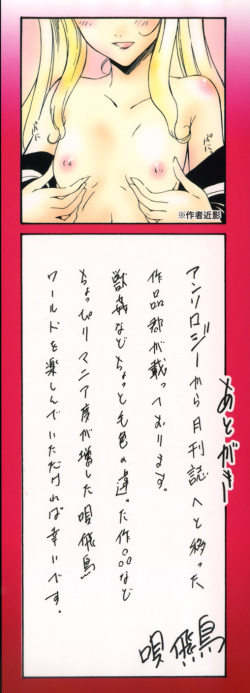 ぱに
ぱに
※作者近影
あとがきー
アンソロジーから月刊誌へと移った
作品郡が載っております。
獣姦などちょっと毛色の違った作品など
ちょっぴりマニア度が増した唄飛鳥
ワールドを楽しんでいただければ幸いです。
唄飛鳥